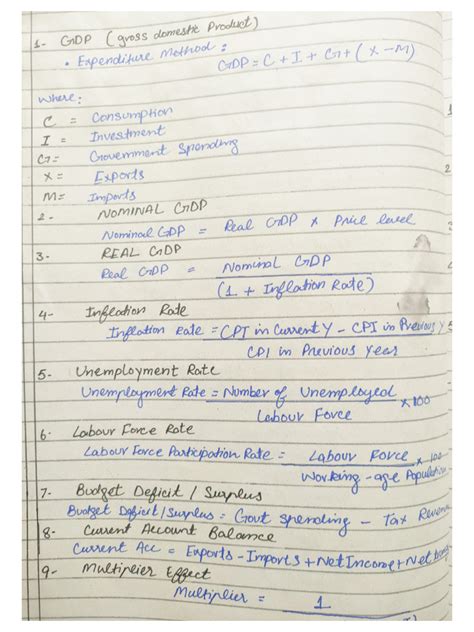 1- GDP (gross domestic Product)
• Expenditure Method :
GDP = C + I + G + (X - M)
where :
C = Consumption
I = Investment
G = Government Spending
X = Exports
M = Imports
2- NOMINAL GDP
Nominal GDP = Real GDP x Price level
3- REAL GDP
Real GDP = Nominal GDP
(1 + Inflation Rate)
4- Inflation Rate
Inflation Rate = CPI in Current Y - CPI in Previous Y
CPI in Previous Year
5- Unemployment Rate
Unemployment Rate = Number of Unemployed x 100
Labour Force
6- Labour Force Rate
Labour Force Participation Rate = Labour Force x 100
Working-age Population
7- Budget Deficit / Surplus
Budget Deficit / Surplus = Govt Spending - Tax
8- Current Account Balance
Current Acc = Exports - Imports + Net Income + Net
9- Multiplier Effect
Multiplier = 1